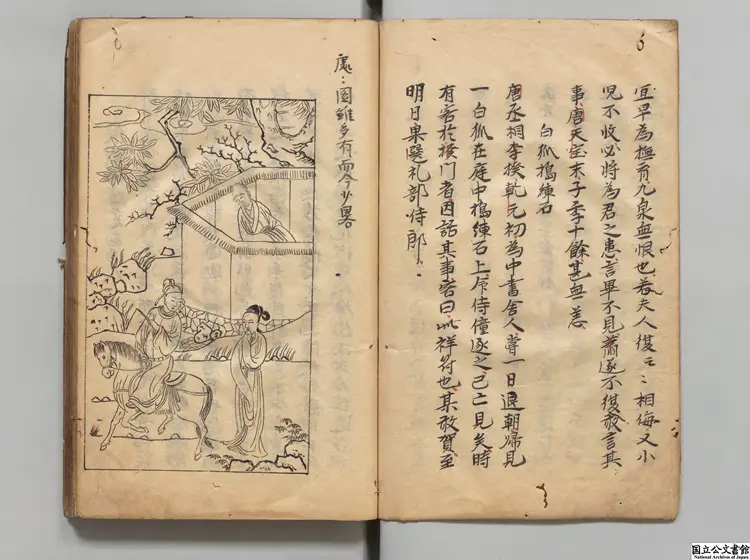 宜早為撫育九泉無恨也若夫人復云〻相侮又小
児不收必將為君之患言畢不見蕭遂不復敢言其
事唐天宝末子年十餘甚無恙
白狐搗練石
唐丞相李揆乾元初為中書舎人嘗一日退朝帰見
一白狐在庭中搗練石上命侍僮逐之已亡見矣時
有客於揆门者因話其事客曰此祥符也某敢賀至
明日果選礼部侍郎
處〻圖雖多有而今少畧
国立公文書館
National Archives of Japan